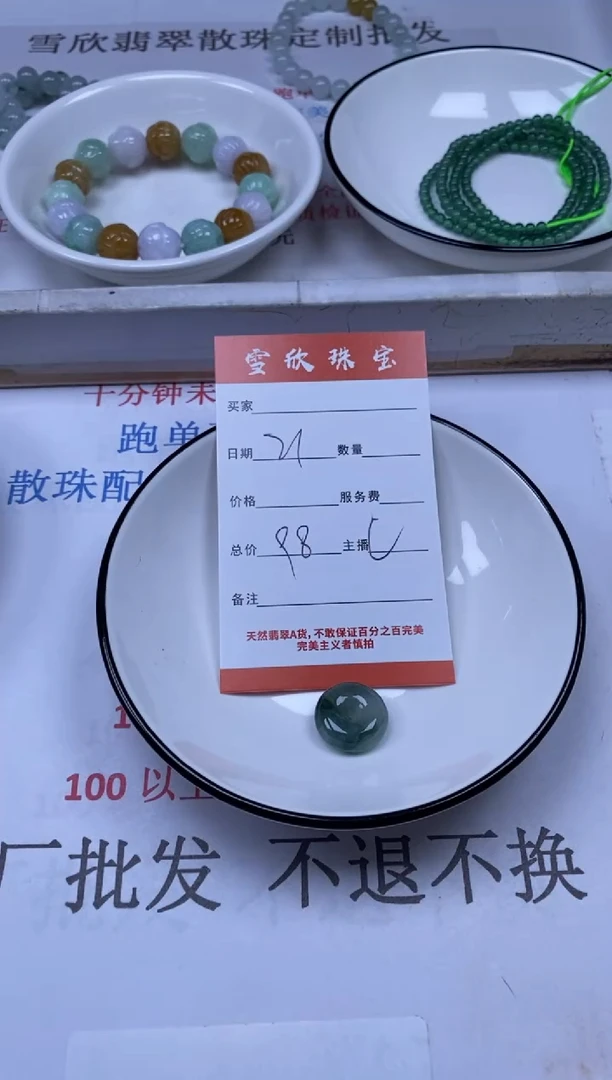 雪欣翡翠散珠定制批发
元
十分钟未
跑单
散珠配
雪欣珠宝
买家
日期 21 数量
价格 服务费
总价 98 主播
备注
天然翡翠A货,不敢保证百分之百完美
完美主义者慎拍
1
100 以上
厂批发 不退不换